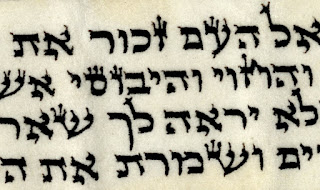 אל העם זכור את
והחוי והיבוסי אש
ולא יראה לך שאר
ים ושמרת את ה